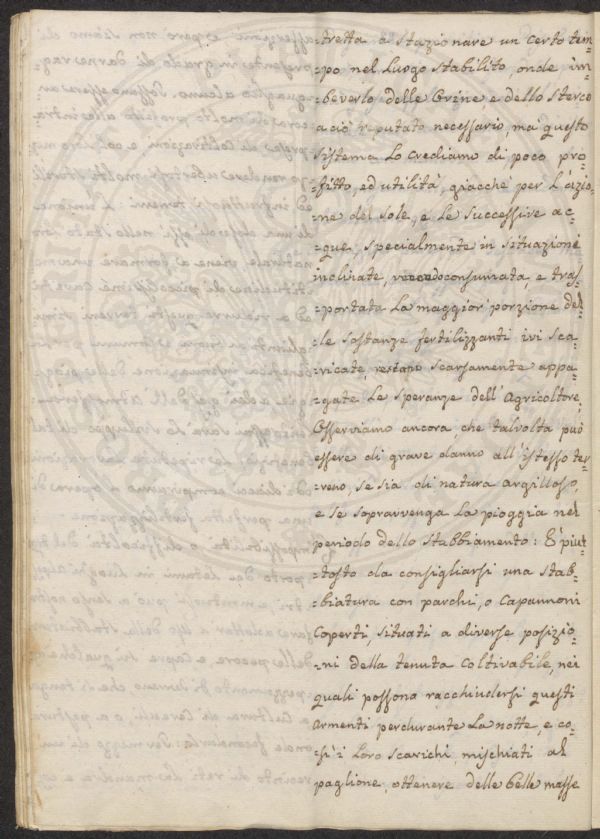 :tretta a stazionare un certo tem=
:po nel Luogo stabilito, onde im=
:beverlo delle Orine e dello sterco
a ciò reputato necessario, ma questo
sistema Lo crediamo di poco pro=
:fitto, ed utilità, giacchè per L'azio=
:ne del sole, e Le successive ac=
:que, specialmente in situazioni
inclinate, consumata, e tras=
:portata La maggior porzione del=
:le sostanze fertilizzanti ivi sca=
:ricate, restano scarsamente appa=
:gate Le speranze dell'Agricoltore,
Osserviamo ancora, che talvolta può
essere di grave danno all'istesso ter=
:reno, se sia di natura argilloso,
e se sopravvenga La pioggia nel
periodo dello stabbiamento: È piut=
:tosto da consigliarsi una stab=
:biatura con parchi, o Capannoni
Coperti, situati a diverse posizio=
:ni della tenuta Coltivabile, nei
quali possona racchiudersi questi
Armenti perdurante La notte, e co=
:sì i Loro scarichi, mischiati al
paglione, ottenere delle belle masse